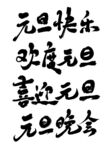 元旦快乐
欢度元旦
喜迎元旦
元旦晚会